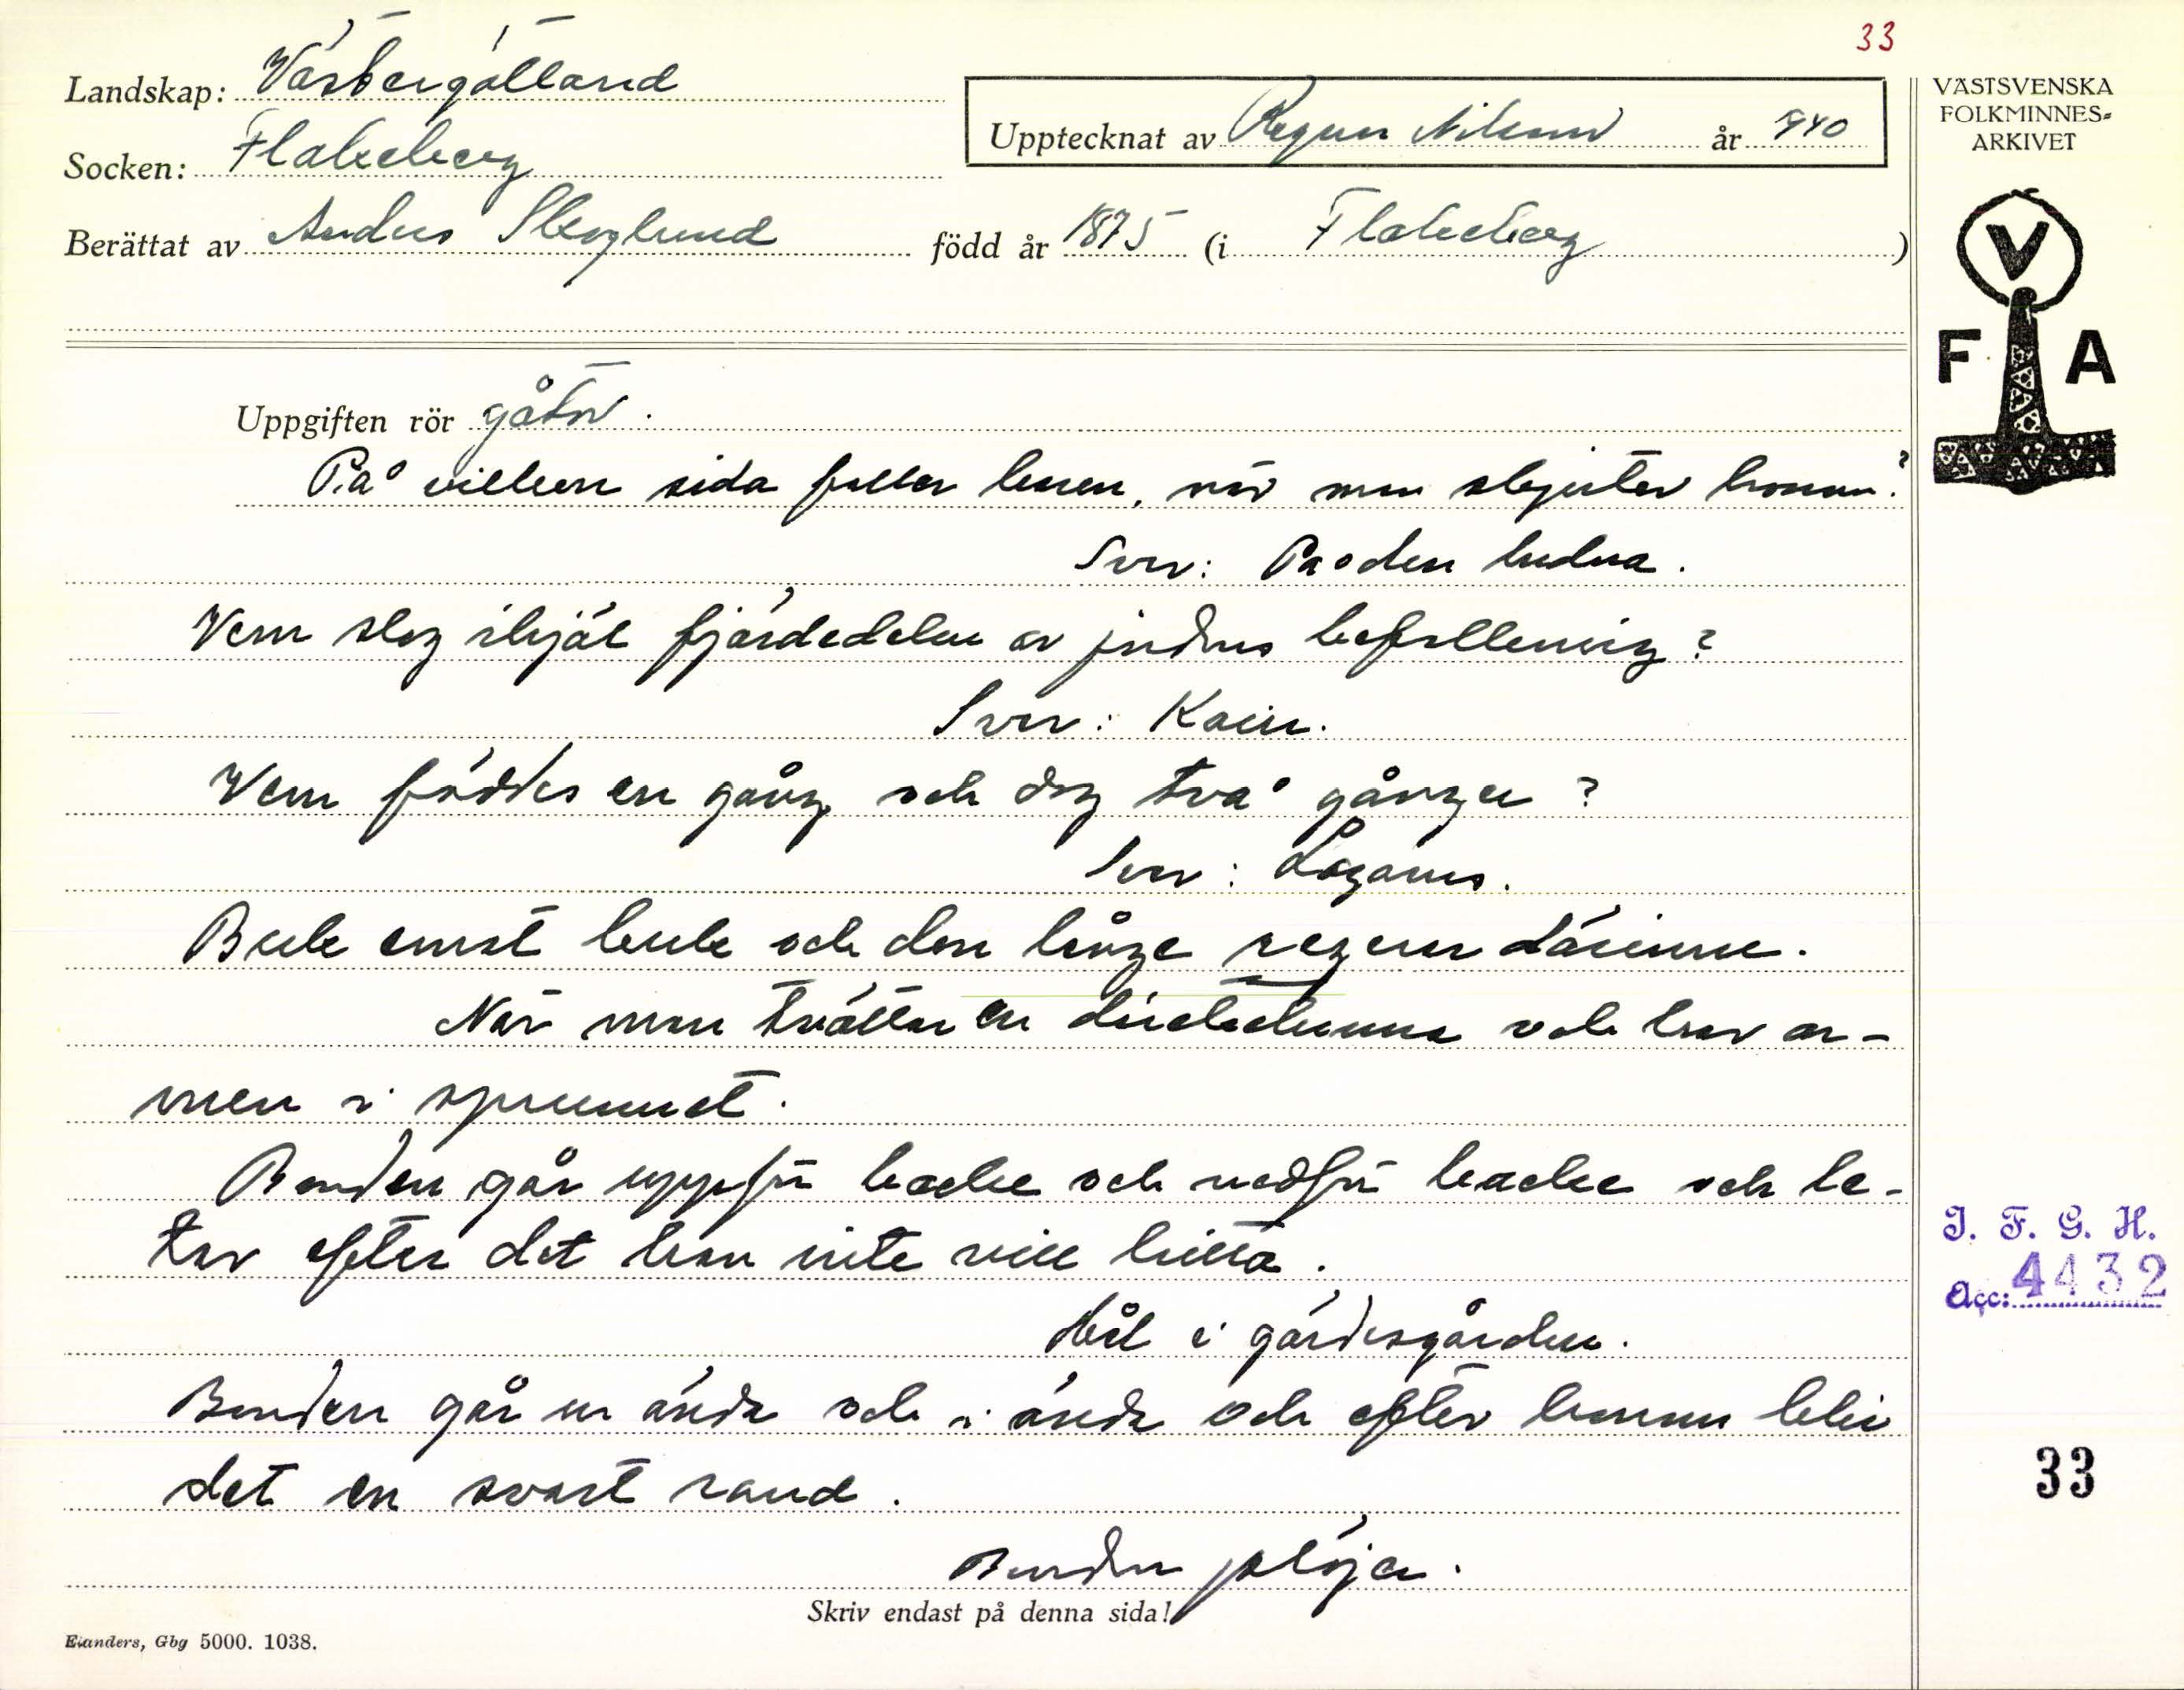 33
Landskap: Västergötland
Socken: Flakeberg
Upptecknat av Ragnar Nilsson år 1940
Berättat av Anders Skoglund född år 1875 (i Flakeberg)
VÄSTSVENSKA
FOLKMINNES=
ARKIVET
V
F A
Uppgiften rör gåtor.
På vilken sida faller haren, när man skjuter honom?
Svar: På den ludna.
Vem slog ihjäl fjärdedelen av jordens befolkning?
Svar: Kain.
Vem föddes en gång och dog två gånger?
Svar: Lazarus.
Buk emot buk och den långe regerar därinne.
När man tvättar en dricketunna och har ar-
men i sprunnet.
Bonden går uppför backe och nedför backe och le-
tar efter det han inte vill hitta.
Hål i gärdesgården.
Bonden går en ända och i ända och efter honom blir
det en svart rand.
Bonden plöjer.
Skriv endast på denna sida!
Elanders, Gbg 5000. 1038.
I. F. G. H.
Acc: 4432
33